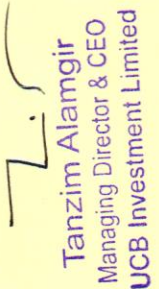 Tanzim Alamgir
Managing Director & CEO
UCB Investment Limited